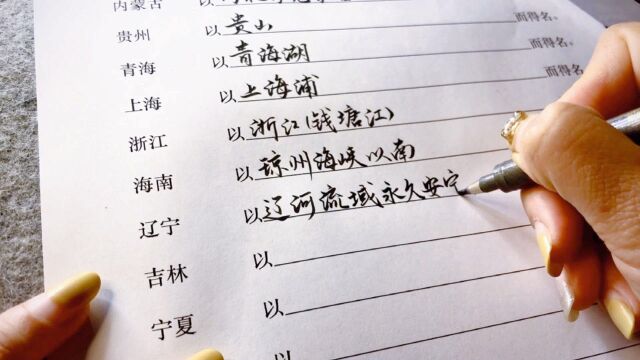 内蒙古 以
贵州 以贵山而得名。
青海 以青海湖而得名。
上海 以上海浦而得名。
浙江 以浙江(钱塘江)
海南 以琼州海峡以南
辽宁 以辽河流域永久安宁
吉林 以
宁夏 以
以